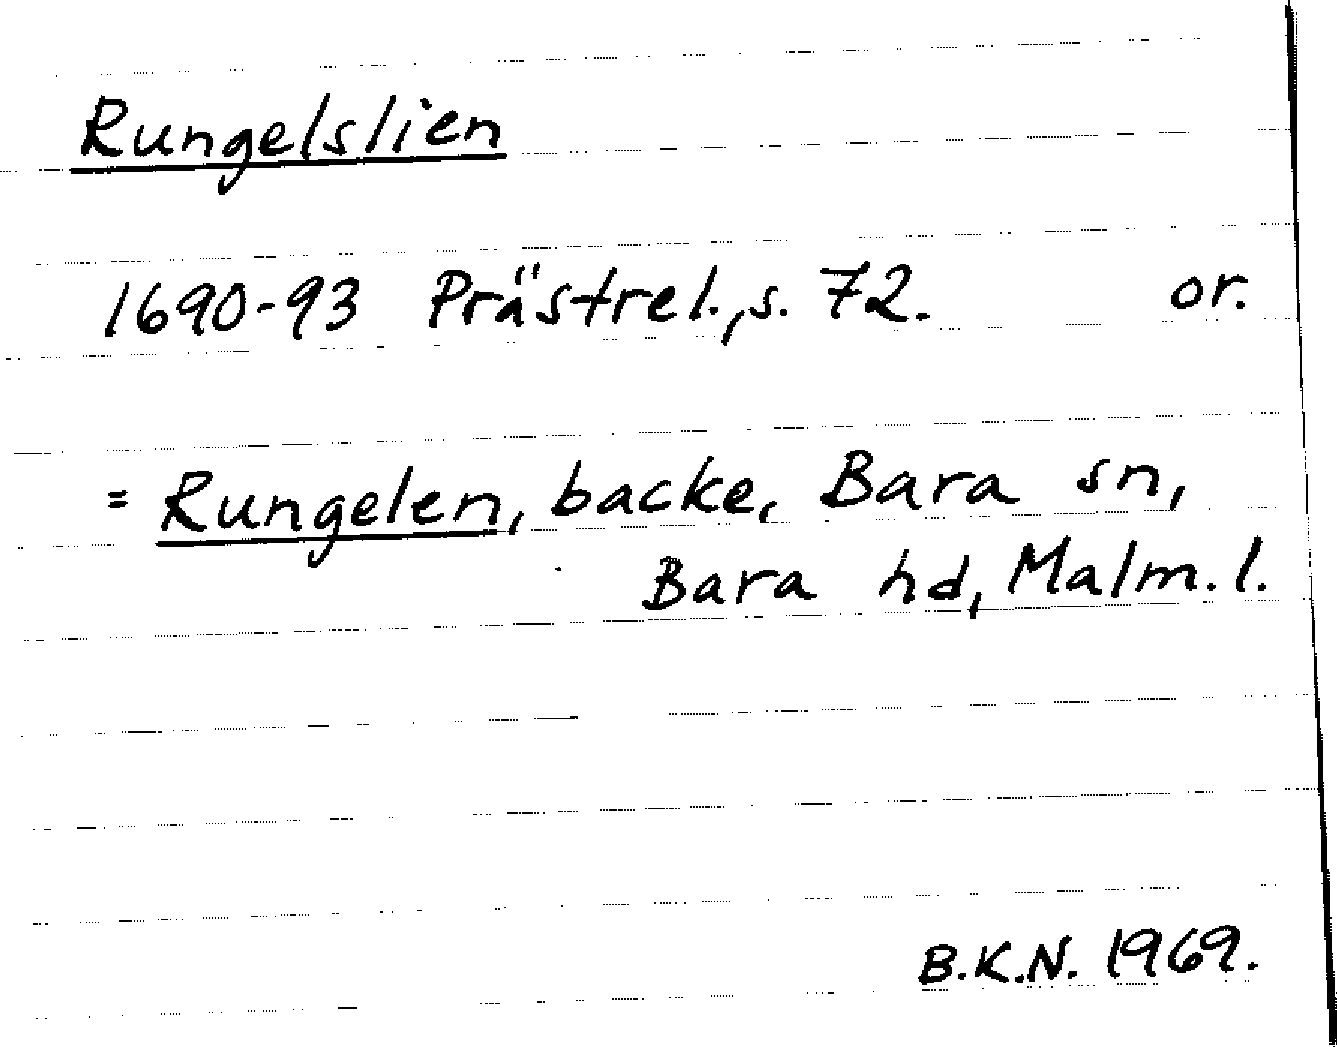 Rungelslien
1690-93 Prästrel., s. 72. or.
= Rungelen, backe, Bara sn,
Bara hd, Malm. l.
B.K.N. 1969.